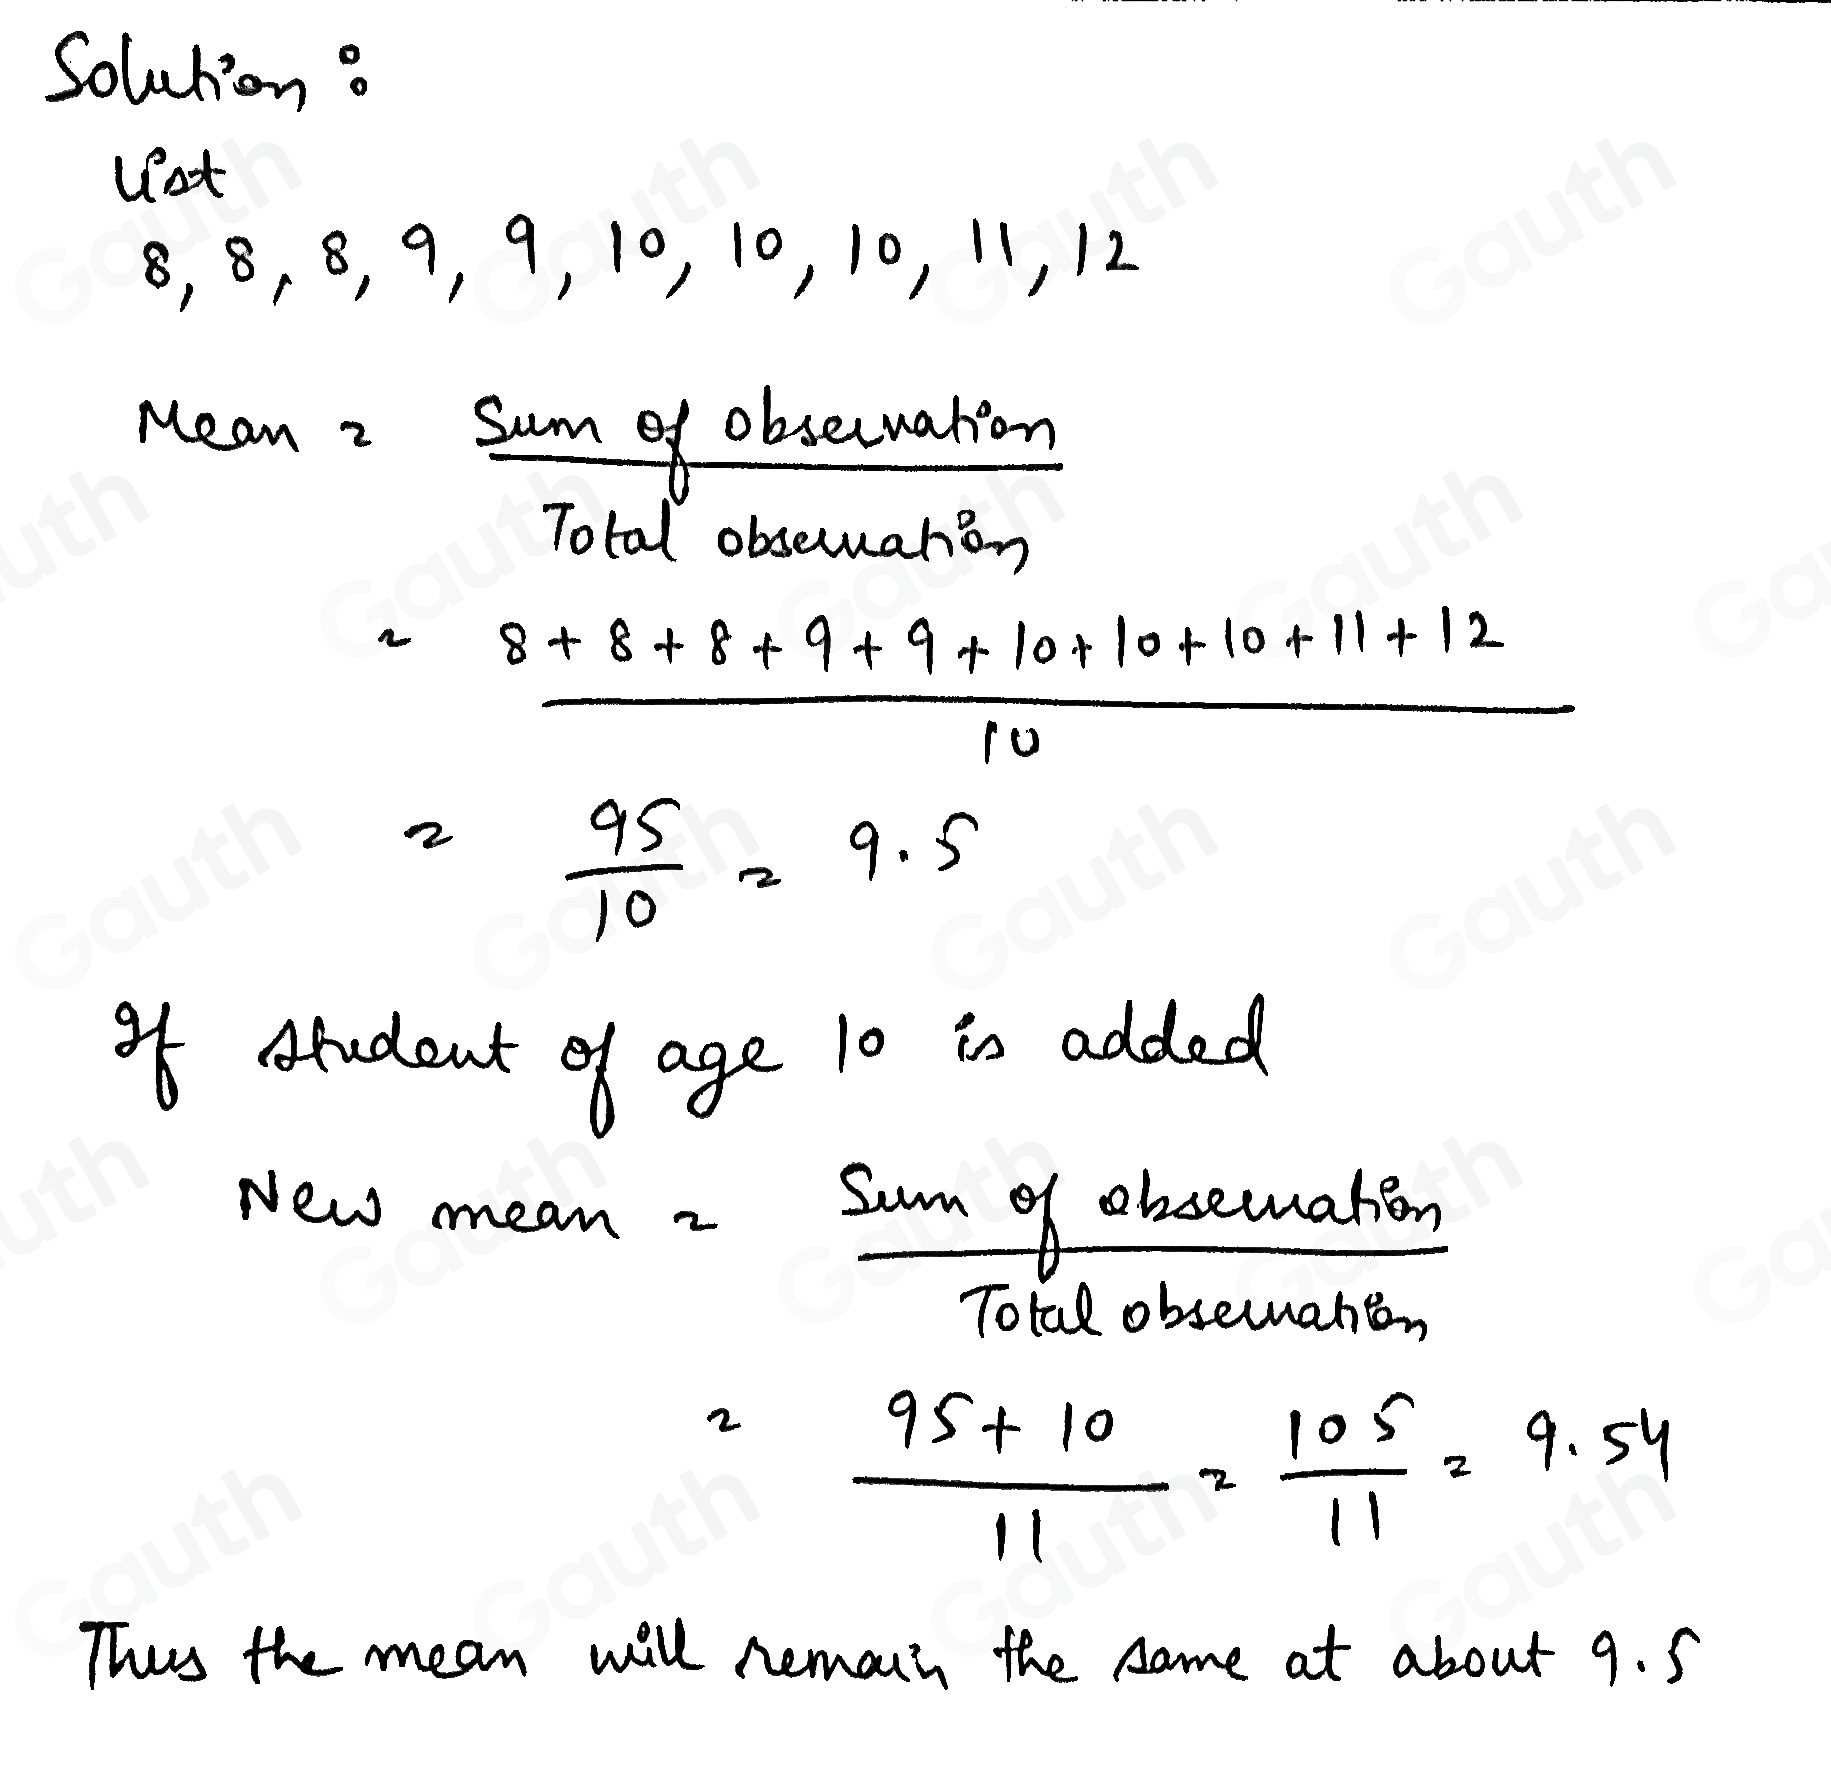 Solution :
List
8, 8, 8, 9, 9, 10, 10, 10, 11, 12
Mean = Sum of observation
Total observation
= 8 + 8 + 8 + 9 + 9 + 10 + 10 + 10 + 11 + 12
10
= 95
10
= 9.5
If student of age 10 is added
New mean = Sum of observation
Total observation
= 95 + 10
11
= 105
11
= 9.54
Thus the mean will remain the same at about 9.5
Gauth